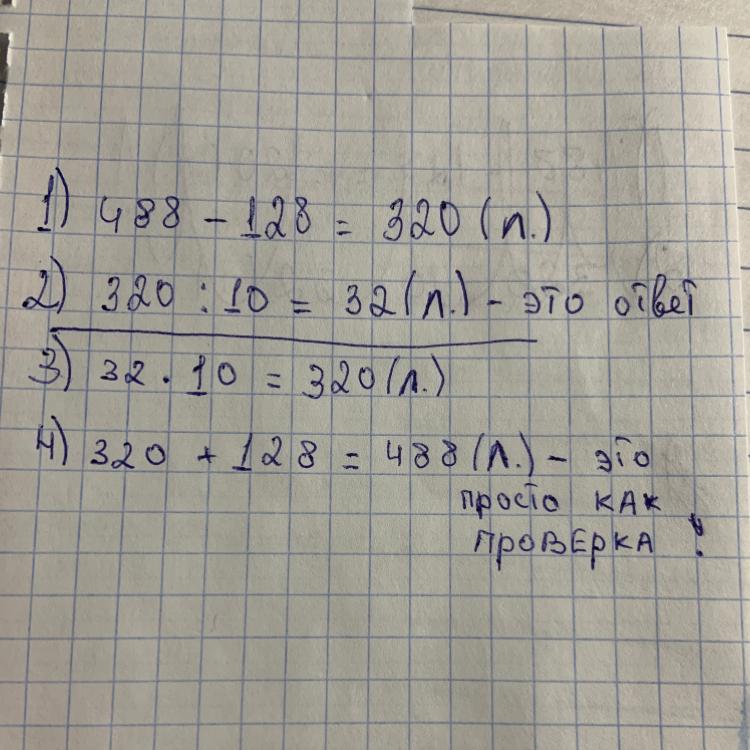 1) 488 - 128 = 320 (л.)
2) 320 : 10 = 32 (л.) - это ответ
3) 32 . 10 = 320 (л.)
4) 320 + 128 = 488 (л.) - это
просто как
ПРОВЕРКА !